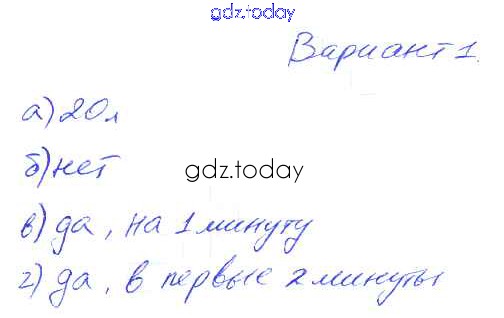 gdz.today
Вариант 1.
а) 20л
б) нет
gdz.today
в) да, на 1 минуту
г) да, в первые 2 минуты